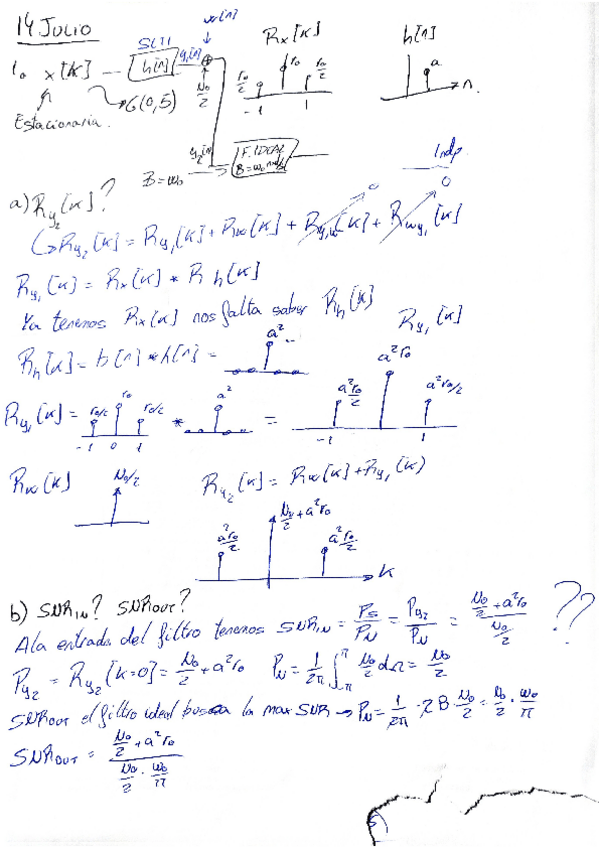 14 JULIO
w[n]
SLTI
1o x[k] h[n] y₁[n] ⊕
Rx[k]
r₀/2 r₀ r₀/2
-1 1
h[n]
a
n
N₀/2
G(0,5)
Estacionaria
y₂[n]
F. IDEAL
B=ω₀
B=ω₀
Indp
a) Ry₂[k]?
Ry₂[k] = Ry₁[k] + Rw[k] + Ry₁w[k] + Rwy₁[k]
0 0
Ry₁[k] = Rx[k] * Rh[k]
Ya tenemos Rx[k] nos falta saber Rh[k]
Rh[k] = h[n] * h[n] = a²
Ry₁[k]
Ry₁[k] = r₀/2 r₀ r₀/2 * a² = a²r₀/2 a²r₀ a²r₀/2
-1 0 1 -1 1
Rw[k] N₀/2
Ry₂[k] = Rw[k] + Ry₁[k]
a²r₀/2 N₀/2 + a²r₀ a²r₀/2
k
b) SNR_IN? SNR_OUT?
A la entrada del filtro tenemos SNR_IN = P_S/P_N = P_y₂/P_N = (N₀/2 + a²r₀)/(N₀/2) ??
P_y₂ = R_y₂[k=0] = N₀/2 + a²r₀ P_N = 1/2π ∫_-π^π N₀/2 dΩ = N₀/2
SNR_OUT el filtro ideal busca la max SNR → P_N = 1/2π · 2B · N₀/2 = N₀/2 · ω₀/π
SNR_OUT = (N₀/2 + a²r₀)/(N₀/2 · ω₀/π)